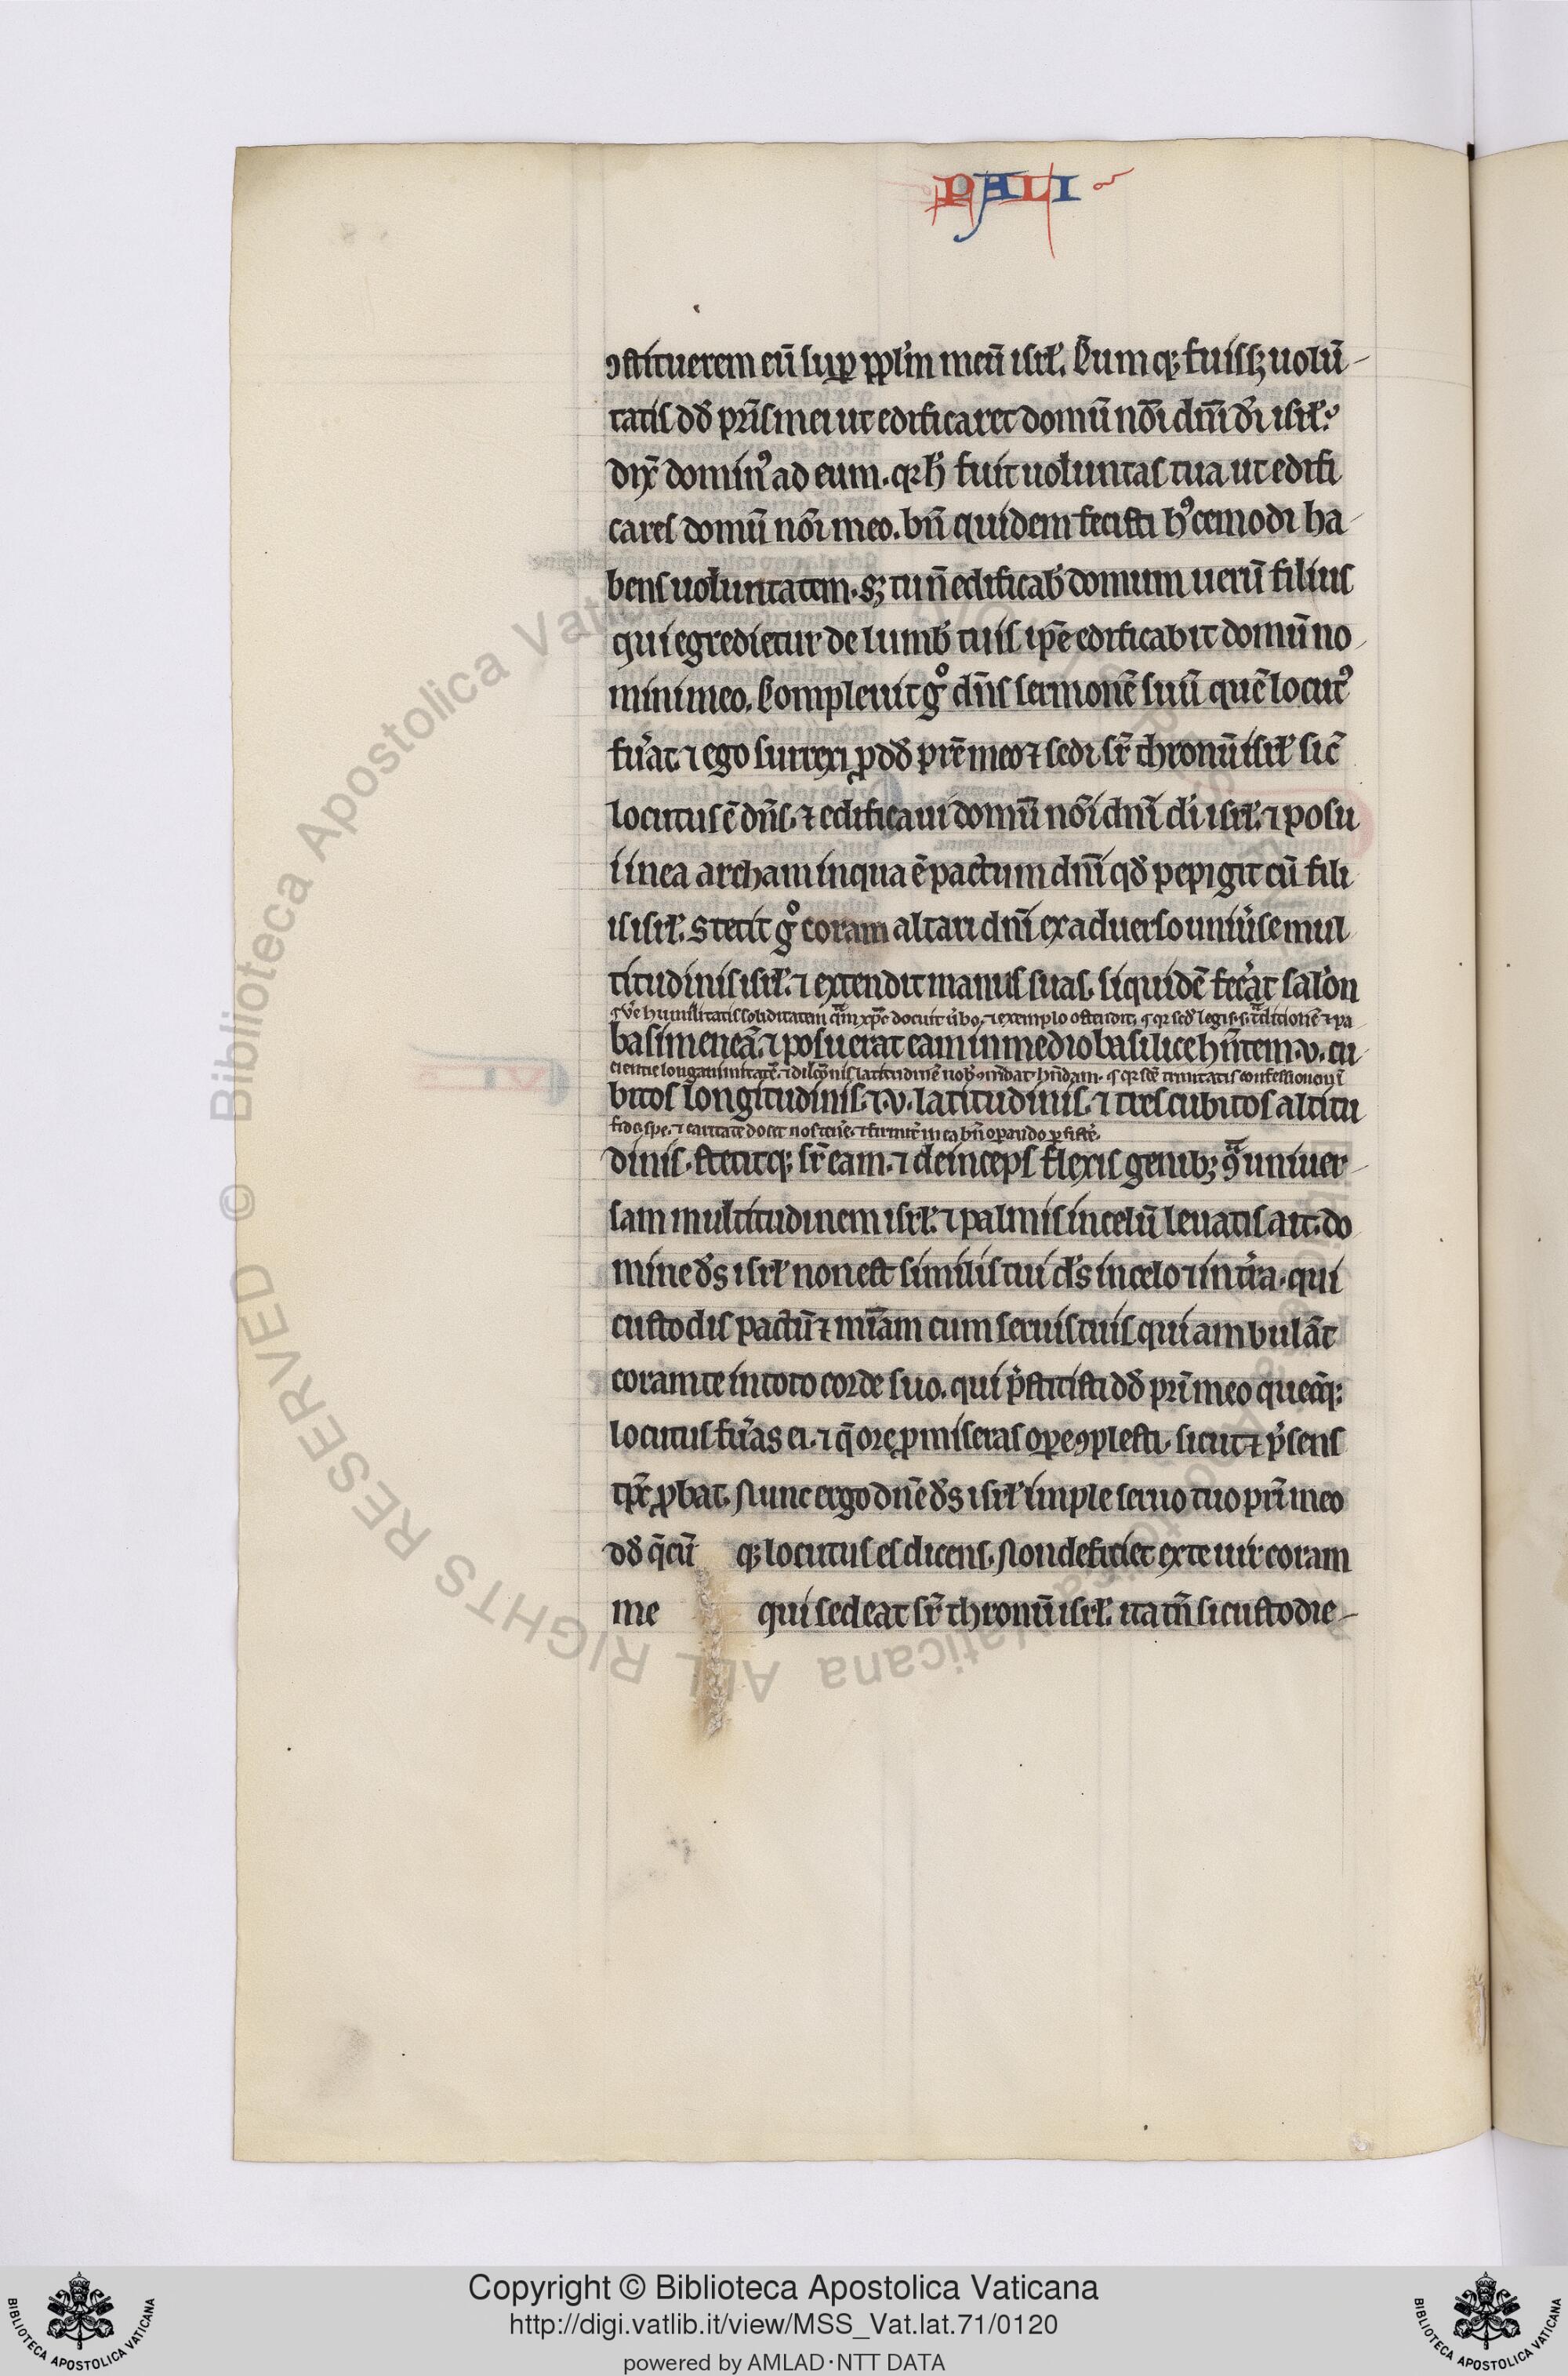 PALI
ꝯstituerem eū suꝑ ppl̄m meū isrł. Cumq; fuissꝫ uolū-
tatis dd̄ pr̄is mei ut edificaret domū nōi dn̄i dī isrł.
dix̄ dominꝰ ad eum. qr h̄ fuit uoluntas tua ut edifi
cares domū nōi meo. bn̄ quidem fecisti hꝰcemodi ha-
bens uoluntatem. sꝫ tu n̄ edificab̄ domum uerū filius
qui egredietur de lumb̄ tuis ip̄e edificabit domū no-
mini meo. Compleuit gͦ dn̄s sermonē suū quē locutꝰ
fūat. ⁊ ego surrexi ꝓ dd̄ pr̄e meo ⁊ sedi sr̄ thronū isrł sic̄
locutus ē dn̄s. ⁊ edificaui domū nōi dn̄i dī isrł. ⁊ posu
i in ea archam in qua ē pactum dn̄i qd̄ pepigit cū fili
is isrł. Stetit gͦ coram altari dn̄i ex aduerso uniūse mul
titudinis isrł. ⁊ extendit manus suas. siquidē fec̄at salōn
humilitatis soliditatem q̄m xp̄c docuit ūbo. ⁊ exemplo ostendit.
basim eneā. ⁊ posuerat eam in medio basilice hn̄tem .v. cu
cientie longanimitatē. ⁊ dilc̄onis latitudinē
bitos longitudinis. ⁊ .v. latitudinis. ⁊ tres cubitos altitu
fide. spe. ⁊ caritate docet nos
dinis. stetitq; sr̄ eam. ⁊ deinceps flexis genibꝫ ꝯᵃ uniuer-
sam multitudinem isrł. ⁊ palmis in celū leuatis. ait. do
mine ds̄ isrł non est similis tui ds̄ in celo ⁊ in t̄ra. qui
custodis pactū ⁊ mīam cum seruis tuis qui ambulāt
coram te in toto corde suo. qui p̄stitisti dd̄ pr̄i meo quecūq;
locutus fūas ei. ⁊ q̄ ore ꝓmiseras oꝑe ꝯplesti. sicut ⁊ p̄sens
tp̄c ꝓbat. Nunc ergo dn̄e ds̄ isrł imple seruo tuo pr̄i meo
dd̄ q̄cū q; locutus es dicens. Non deficiet ex te uir coram
me qui sedeat sr̄ thronū isrł. ita tn̄ si custodie-
Copyright © Biblioteca Apostolica Vaticana
http://digi.vatlib.it/view/MSS_Vat.lat.71/0120
powered by AMLAD·NTT DATA
BIBLIOTECA APOSTOLICA VATICANA
BIBLIOTECA APOSTOLICA VATICANA
© Biblioteca Apostolica Vaticana ALL RIGHTS RESERVED